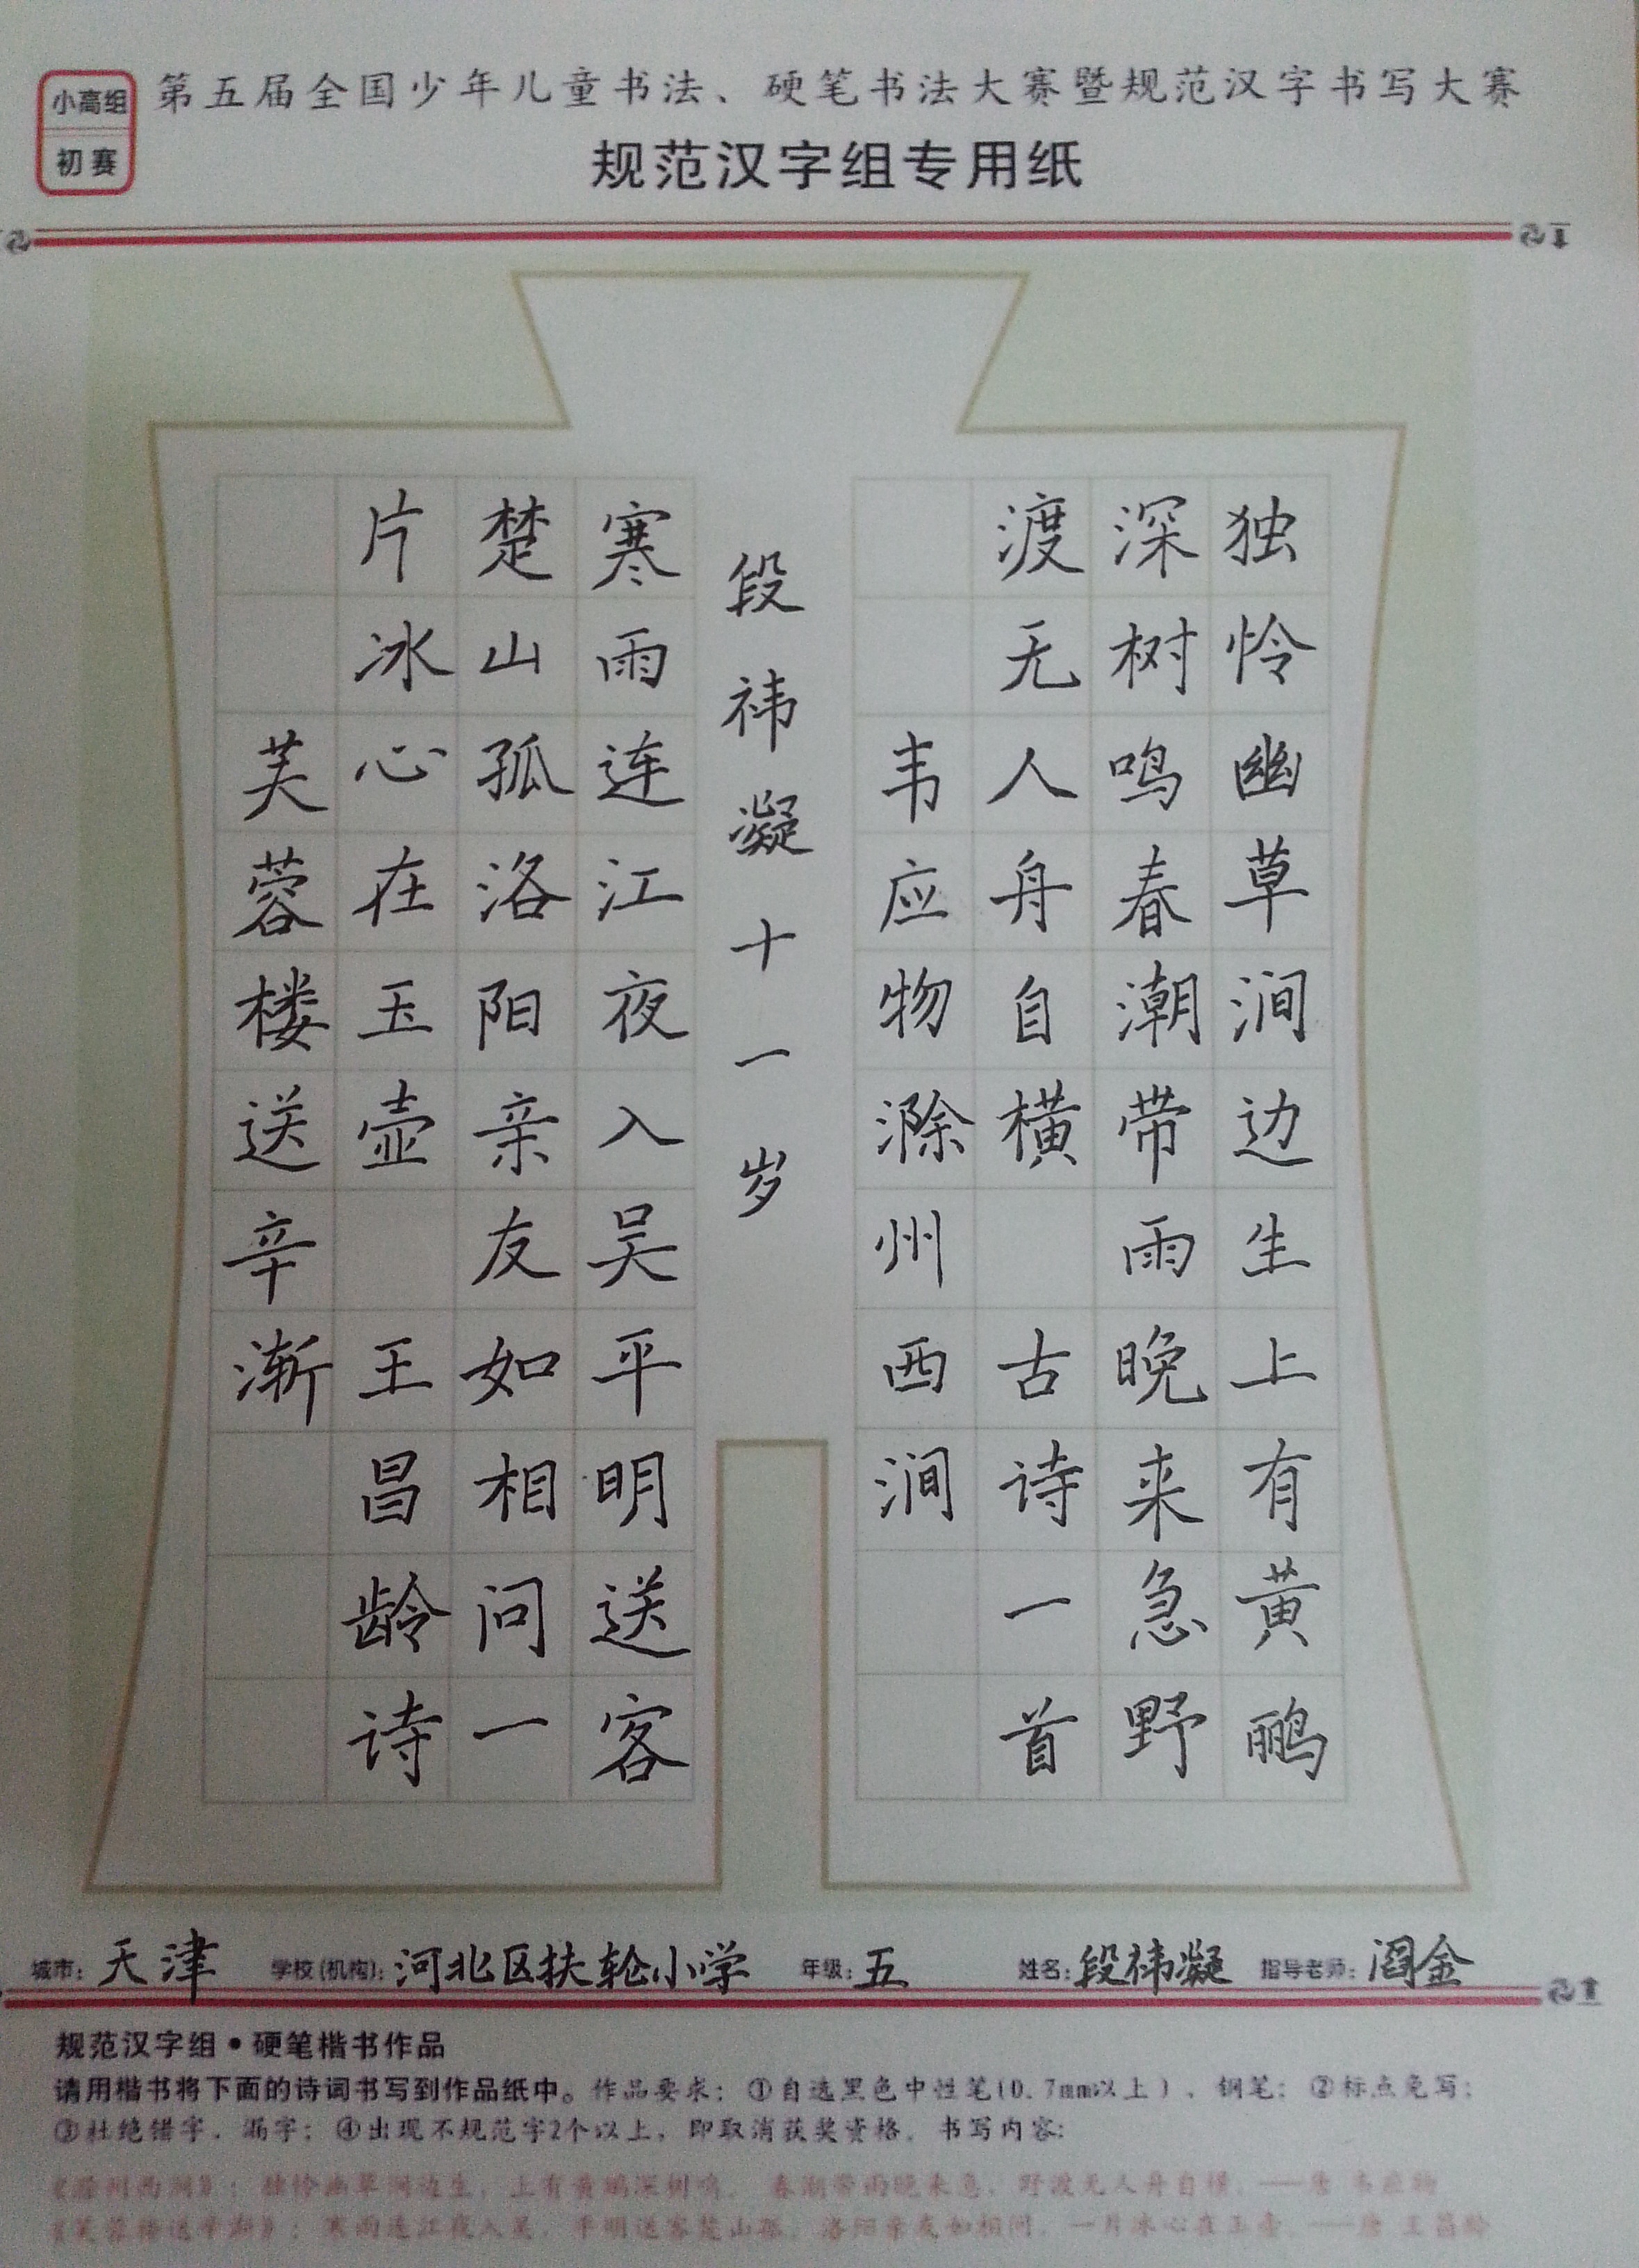 小高组
初赛
第五届全国少年儿童书法、硬笔书法大赛暨规范汉字书写大赛
规范汉字组专用纸
独怜幽草涧边生上有黄鹂
深树鸣春潮带雨晚来急野
渡无人舟自横 古诗一首
韦应物滁州西涧
段祎凝十一岁
寒雨连江夜入吴平明送客
楚山孤洛阳亲友如相问一
片冰心在玉壶 王昌龄诗
芙蓉楼送辛渐
城市：天津 学校(机构)：河北区扶轮小学 年级：五 姓名：段祎凝 指导老师：阎金
规范汉字组•硬笔楷书作品
请用楷书将下面的诗词书写到作品纸中。作品要求：①自选黑色中性笔(0.7mm以上)、钢笔；②标点免写；
③杜绝错字、漏字；④出现不规范字2个以上，即取消获奖资格。书写内容：
《滁州西涧》：独怜幽草涧边生，上有黄鹂深树鸣。春潮带雨晚来急，野渡无人舟自横。——唐 韦应物
《芙蓉楼送辛渐》：寒雨连江夜入吴，平明送客楚山孤。洛阳亲友如相问，一片冰心在玉壶。——唐 王昌龄